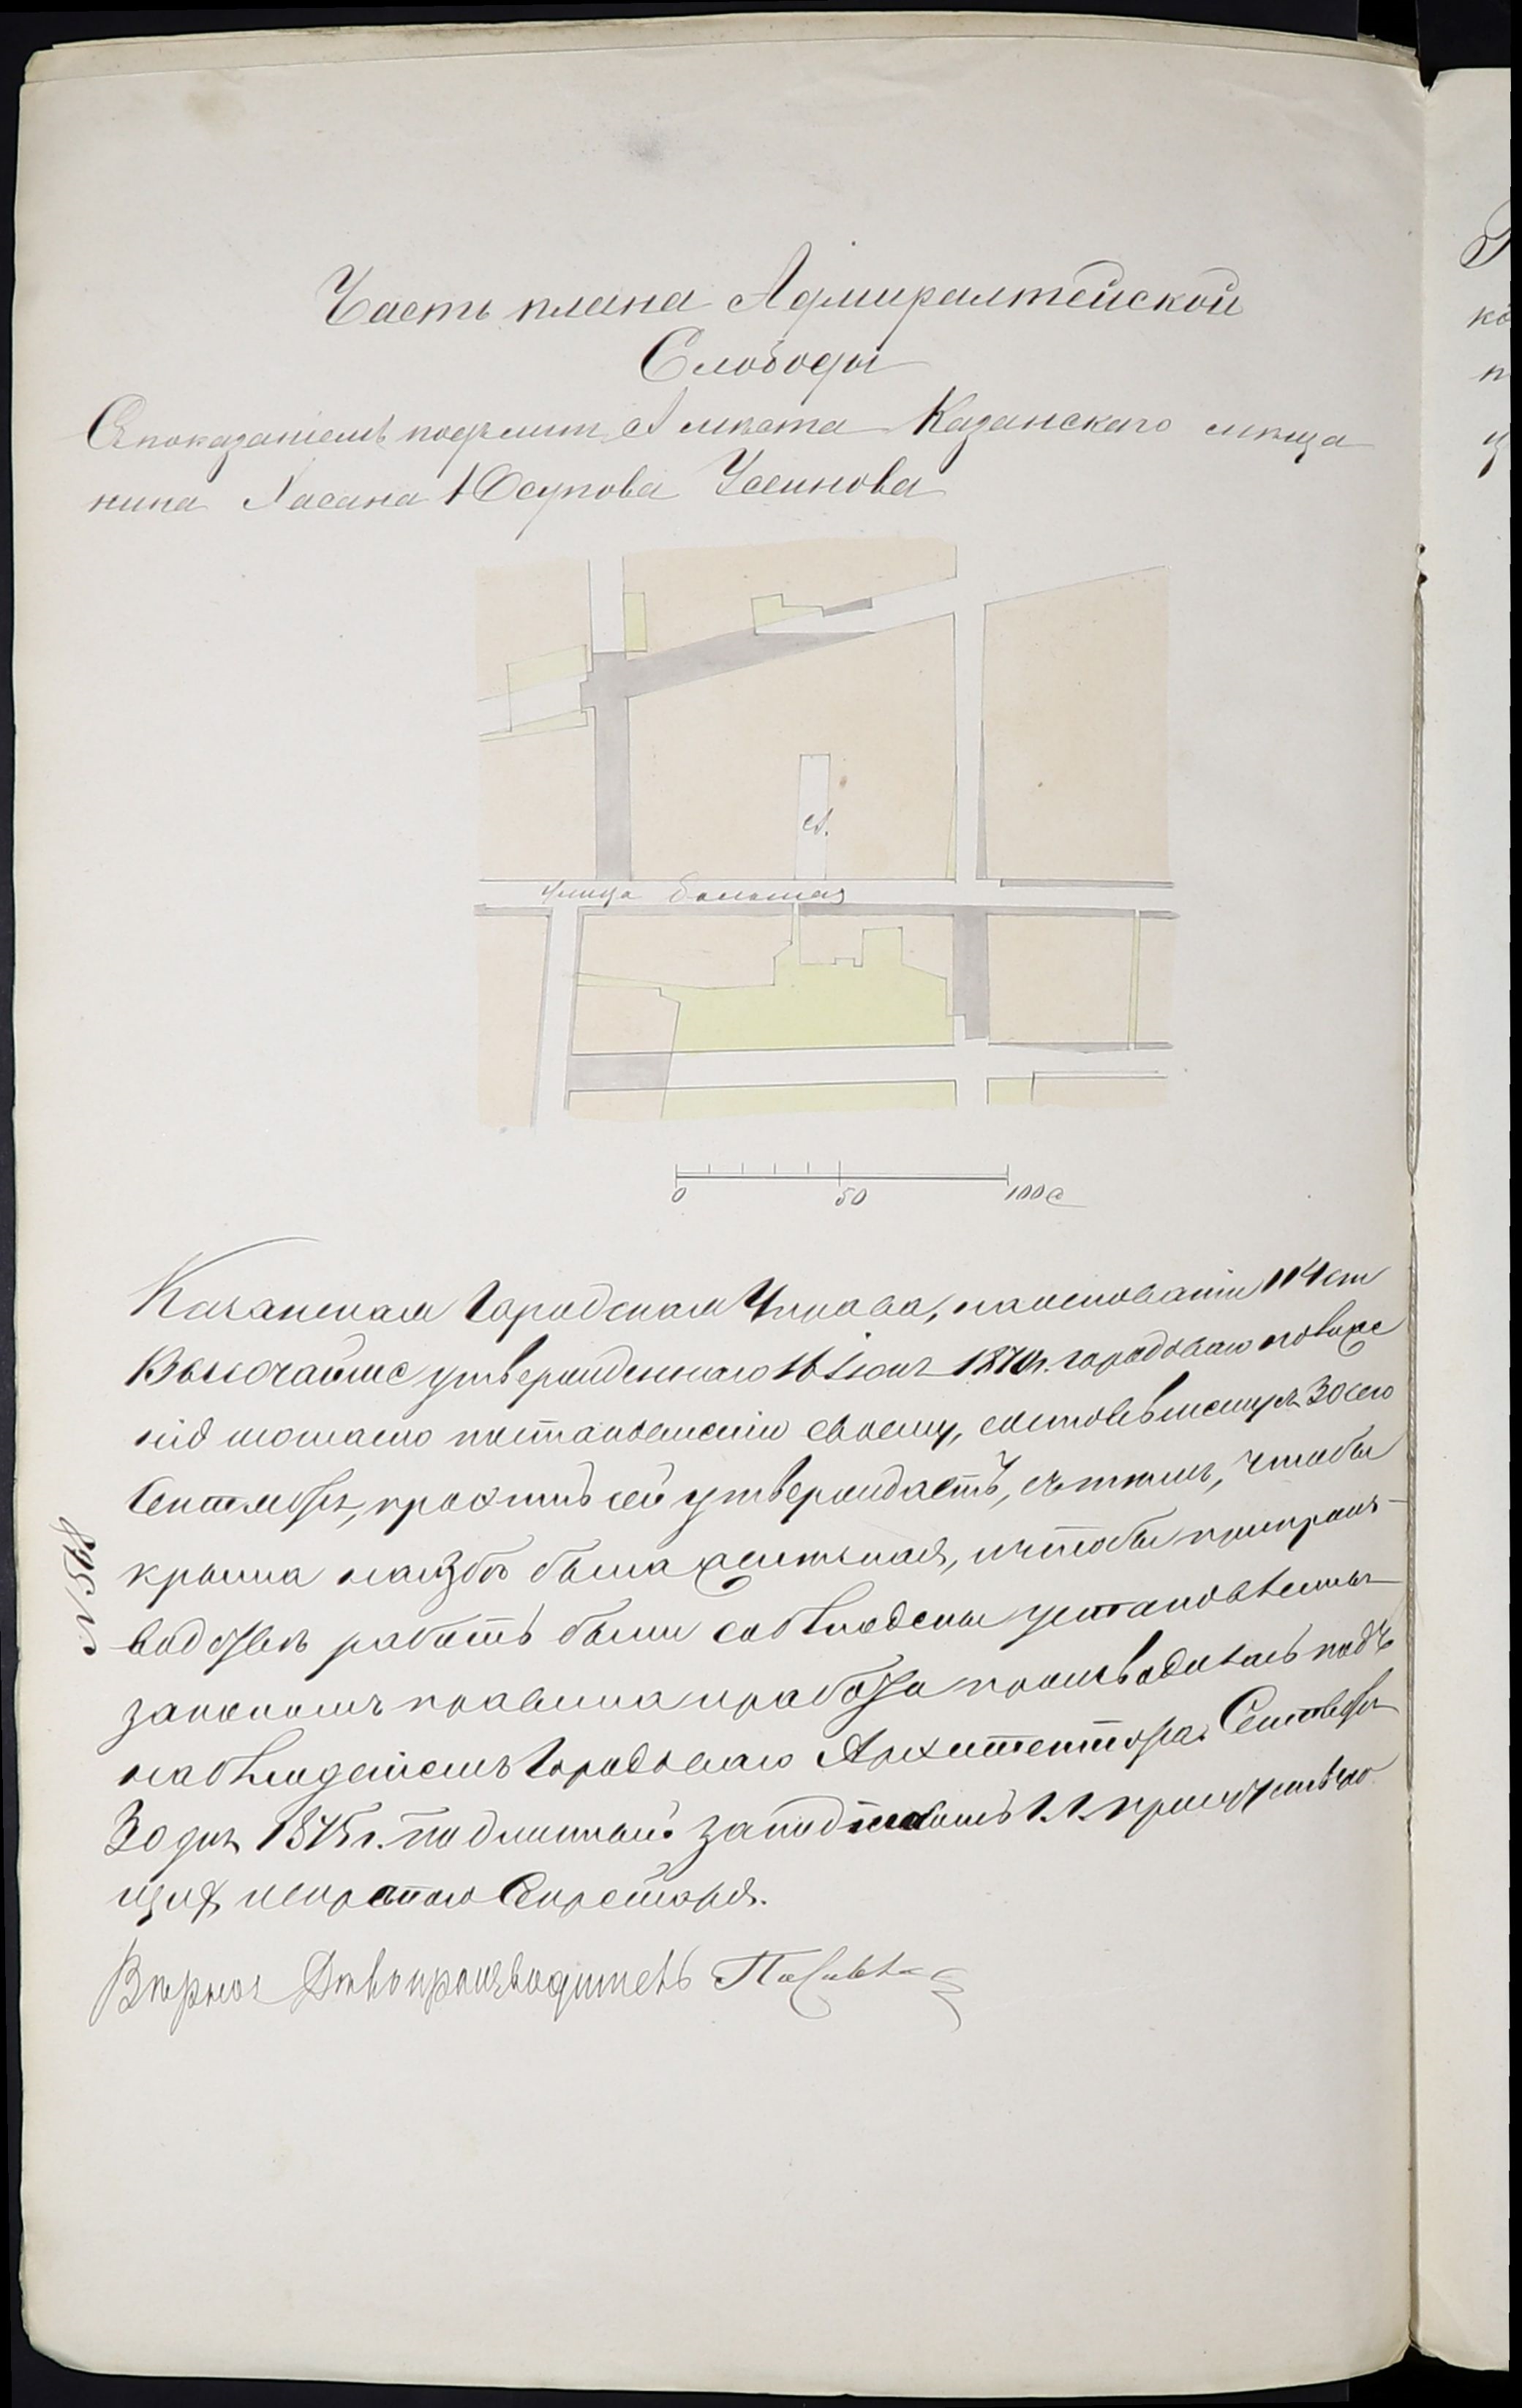 Часть плана Адмиралтейской
Слободы
Съ показаніемъ подъ лит. А мѣста Казанскаго мѣща
нина Хасана Юсупова Усеинова
А.
улица большая
0 50 100 с
Казанская Городская Управа, на основаніи 114 ст
Высочайше утвержденнаго 16 Іюня 1870 г. городоваго положе
нія согласно постановленію своему, состоявшемуся 30 сего
Сентября, проэктъ сей утверждаетъ, съ тѣмъ, чтобы
крыша на избѣ была желѣзная, и чтобы при произ-
водствѣ работъ были соблюдены установленныя
закономъ правила и работа производилась подъ
наблюденіемъ Городоваго Архитектора. Сентября
30 дня 1875 г. подлинный за подписомъ Г.Г. присутствую
щихъ и скрѣпою Секретаря.
Вѣрно: Дѣлопроизводитель
N 568